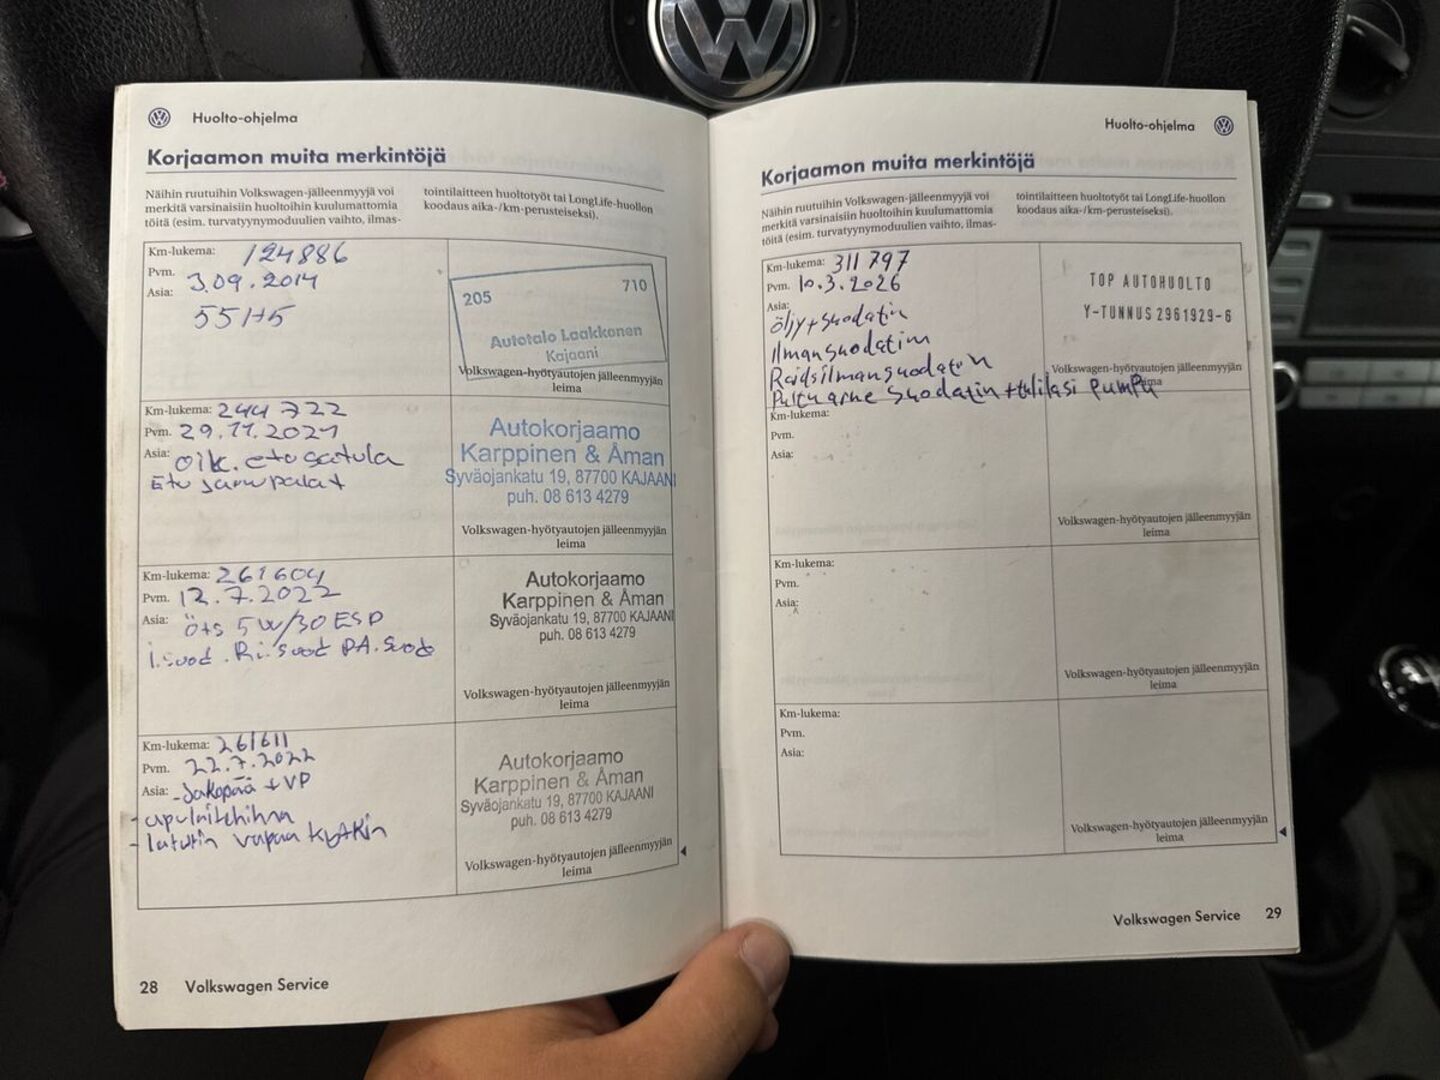 Huolto-ohjelma
Korjaamon muita merkintöjä
Näihin ruutuihin Volkswagen-jälleenmyyjä voi
merkitä varsinaisiin huoltoihin kuulumattomia
töitä (esim. turvatyynymoduulien vaihto, ilmas-
tointilaitteen huoltotyöt tai LongLife-huollon
koodaus aika-/km-perusteiseksi).
Km-lukema: 124886
Pvm. 3.09.2014
Asia:
55H5
205 710
Autotalo Laakkonen
Kajaani
Volkswagen-hyötyautojen jälleenmyyjän
Km-lukema: 244 722
Pvm. 29.11.2021
Asia: oik. etusatula
Etu jarrupalat
Autokorjaamo
Karppinen & Åman
Syväojankatu 19, 87700 KAJAANI
puh. 08 613 4279
Volkswagen-hyötyautojen jälleenmyyjän
leima
Km-lukema: 261604
Pvm. 12.7.2022
Asia: öts 5W/30 ESP
i.suod. Ri.suod PA.suod
Autokorjaamo
Karppinen & Åman
Syväojankatu 19, 87700 KAJAANI
puh. 08 613 4279
Volkswagen-hyötyautojen jälleenmyyjän
leima
Km-lukema: 261611
Pvm. 22.7.2022
Asia: -Jakopää + VP
- apulaitehihna
- laturin vapaa kytkin
Autokorjaamo
Karppinen & Åman
Syväojankatu 19, 87700 KAJAANI
puh. 08 613 4279
Volkswagen-hyötyautojen jälleenmyyjän
leima
28 Volkswagen Service
Huolto-ohjelma
Korjaamon muita merkintöjä
Näihin ruutuihin Volkswagen-jälleenmyyjä voi
merkitä varsinaisiin huoltoihin kuulumattomia
töitä (esim. turvatyynymoduulien vaihto, ilmas-
tointilaitteen huoltotyöt tai LongLife-huollon
koodaus aika-/km-perusteiseksi).
Km-lukema: 311 797
Pvm. 10.3.2026
Asia:
öljy+suodatin
Ilmansuodatin
Raidsilmansuodatin
suodatin + tulilasi pumpu
TOP AUTOHUOLTO
Y-TUNNUS 2961929-6
Volkswagen-hyötyautojen jälleenmyyjän
Km-lukema:
Pvm.
Asia:
Volkswagen-hyötyautojen jälleenmyyjän
leima
Km-lukema:
Pvm.
Asia:
Volkswagen-hyötyautojen jälleenmyyjän
leima
Km-lukema:
Pvm.
Asia:
Volkswagen-hyötyautojen jälleenmyyjän
leima
Volkswagen Service 29